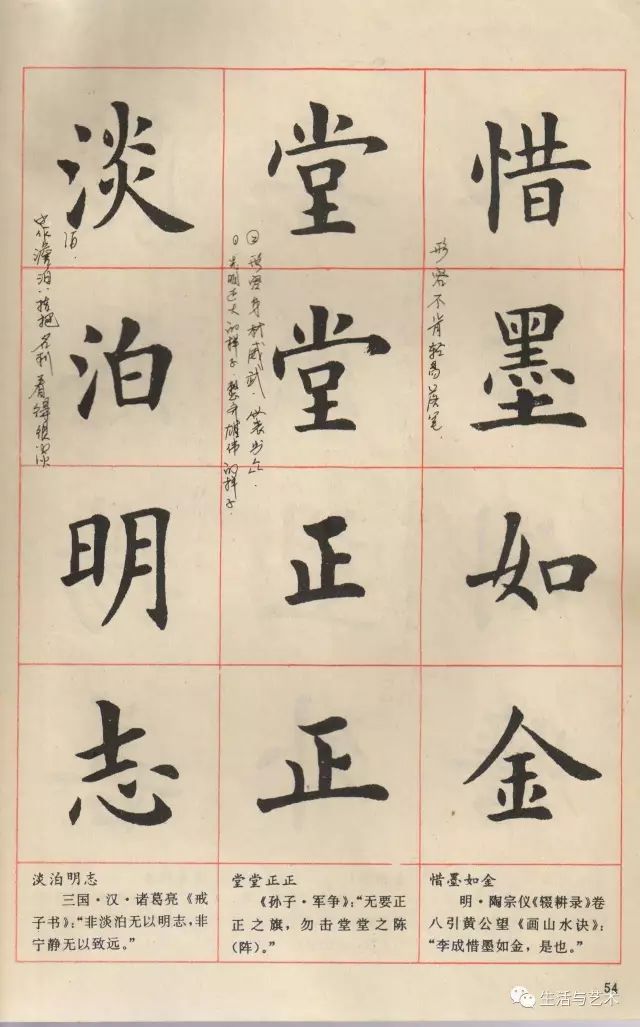 惜墨如金
形容不肯轻易落�.
堂堂正正
②形容身材威武、仪表出众.
①光明正大的样子.整齐雄伟的样子.
淡泊明志
泊.
把名利看得很淡
惜墨如金
明·陶宗仪《辍耕录》卷
八引黄公望《画山水诀》:
“李成惜墨如金，是也。”
堂堂正正
《孙子·军争》:“无要正
正之旗，勿击堂堂之陈
(阵)。”
淡泊明志
三国·汉·诸葛亮《戒
子书》:“非淡泊无以明志，非
宁静无以致远。”
54
生活与艺术